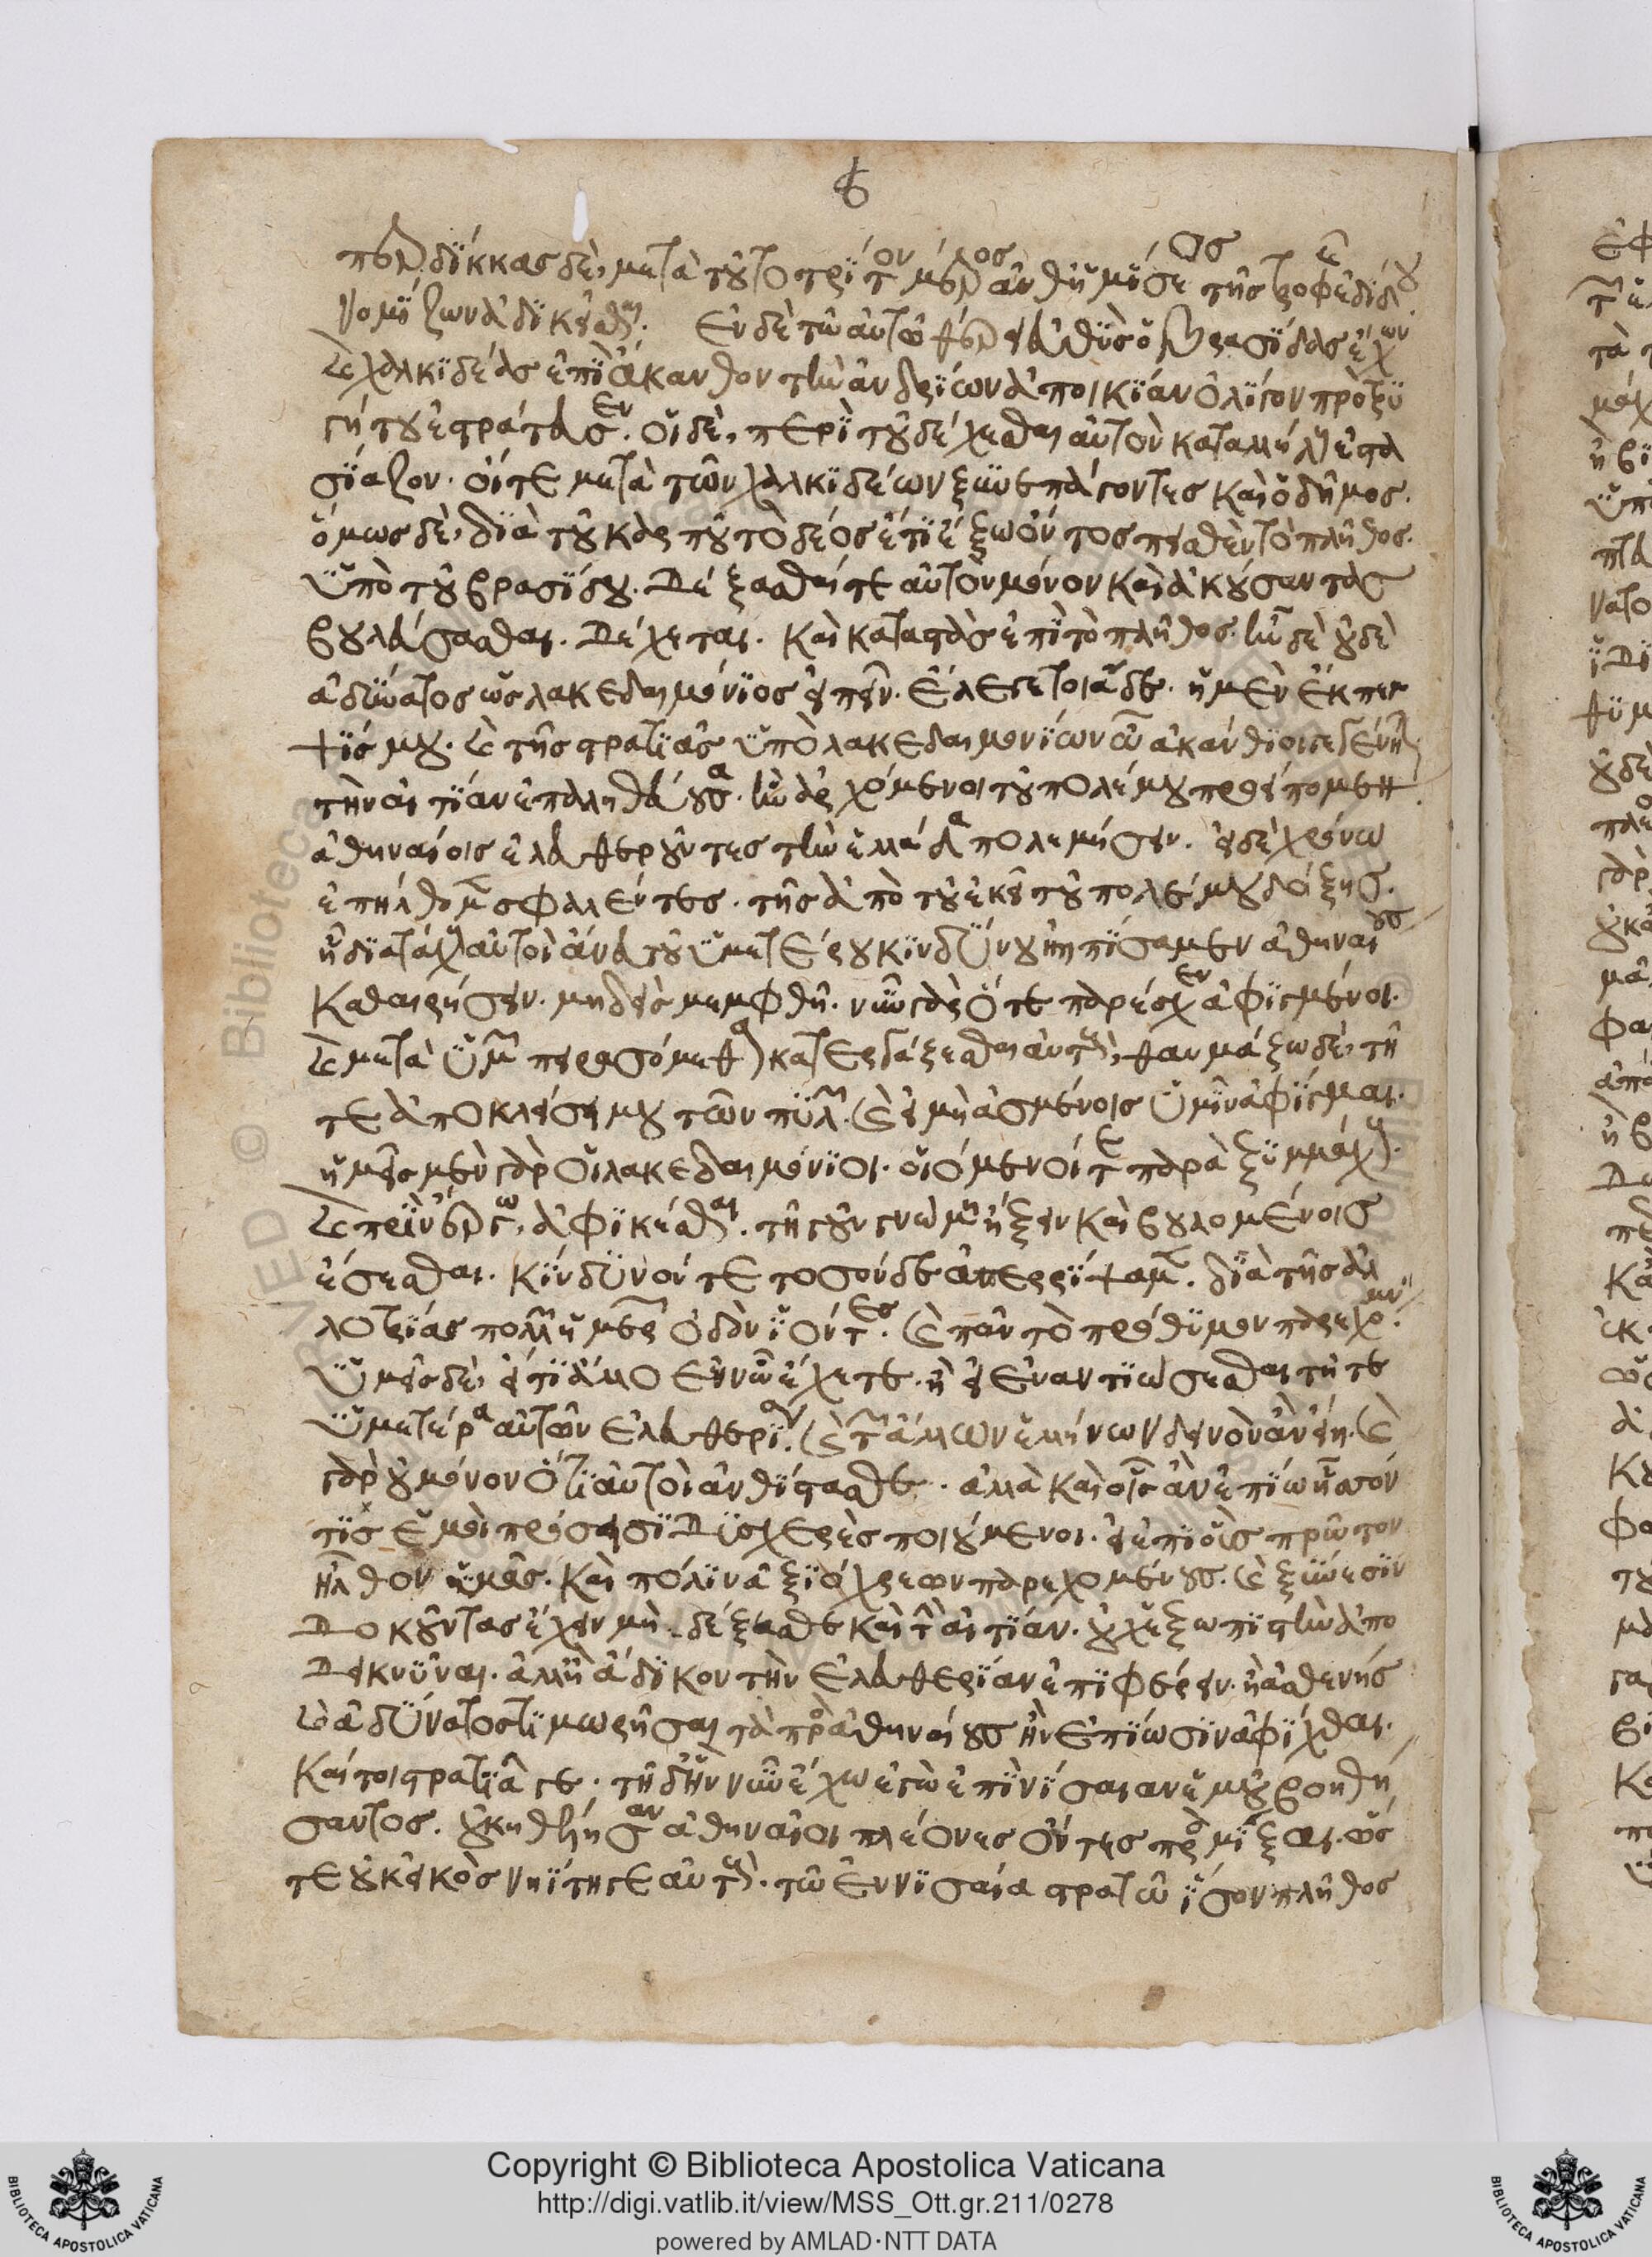 περδίκκας δὲ, μετὰ τοῦτο τρίτον μέρος ἀνθ ἡμίσεως τῆς τροφῆς ἐδίδου
νομίζων ἀδικεῖσθαι. Ἐν δὲ τῶ αὐτῶ θέρει εὐθὺς ὁ βρασίδας ἔχων
καὶ χαλκιδέας ἐπὶ ἄκανθον τὴν ἀνδρίων ἀποικίαν ὀλίγον πρὸ τρυ
γήτου ἐστράτευσεν. οἱ δὲ, περὶ τοῦ δέχεσθαι αὐτὸν κατ' ἀλλήλους ἐστα
σίαζον. οἵ τε μετὰ τῶν χαλκιδέων ξυνεπάγοντες καὶ ὁ δῆμος.
ὅμως δὲ, διὰ τοῦ καρποῦ τὸ δέος ἔτι ἔξω ὄντος πεισθὲν τὸ πλῆθος.
ὑπὸ τοῦ βρασίδου. δέξασθαί τε αὐτὸν μόνον καὶ ἀκούσαντας
βουλεύσασθαι. δέχεται. καὶ καταστὰς ἐπὶ τὸ πλῆθος. ἦν δὲ οὐδὲ
ἀδύνατος ὡς λακεδαιμόνιος εἰπεῖν. ἔλεγε τοιάδε. ἡ μὲν ἔκπεμ
ψίς μου. καὶ τῆς στρατιᾶς ὑπὸ λακεδαιμονίων ὦ ἀκάνθιοι γεγένηται
τὴν αἰτίαν ἐπαληθεύουσα. ἣν ἀρχόμενοι τοῦ πολέμου προείπομεν
ἀθηναίοις ἐλευθεροῦντες τὴν ἑλλάδα πολεμήσειν. εἰ δὲ χρόνω
ἐπήλθομεν σφαλέντες. τῆς ἀπὸ τοῦ ἐκεῖ τοῦ πολέμου δόξης.
ᾗ διὰ τάχους αὐτοὶ ἄνευ τοῦ ὑμετέρου κινδύνου ἠλπίσαμεν ἀθηναίους
καθαιρήσειν. μηδεὶς μεμφθῇ. νῦν γὰρ ὅτε παρέσχεν ἀφιγμένοι.
καὶ μετὰ ὑμῶν πειρασόμεθα κατεργάζεσθαι αὐτούς, θαυμάζω δὲ, τῇ
τε ἀποκλείσει μου τῶν πυλῶν. καὶ εἰ μὴ ἀσμένοις ὑμῖν ἀφῖγμαι.
ἡμεῖς μὲν γὰρ οἱ λακεδαιμόνιοι. οἰόμενοί τε παρὰ ξυμμάχους.
καὶ πρὶν ἔργω, ἀφικέσθαι. τῇ γοῦν γνώμῃ ἥξειν καὶ βουλομένοις
ἔσεσθαι. κίνδυνόν τε τοσόνδε ἀπερρίψαμεν. διὰ τῆς ἀλ
λοτρίας πολλῶν ἡμερῶν ὁδὸν ἰόντες. καὶ πᾶν τὸ πρόθυμον παρεχόμενοι.
ὑμεῖς δὲ, εἴ τι ἄλλο ἐν νῶ ἔχετε. ἢ εἰ ἐναντιώσεσθαι τῇ τε
ὑμετέρα αὐτῶν ἐλευθερία. καὶ τῶν ἄλλων ἑλλήνων δεινὸν ἂν εἴη. καὶ
γὰρ οὐ μόνον ὅτι αὐτοὶ ἀνθίστασθε. ἀλλὰ καὶ οἷς ἂν ἐπίω ἧσσόν
τις ἐμοὶ πρόσεισι δυσχερὲς ποιούμενοι. εἰ ἐπὶ οὓς πρῶτον
ἦλθον ὑμᾶς. καὶ πόλιν ἀξιόχρεων παρεχομένους. καὶ ξύνεσιν
δοκοῦντας ἔχειν μὴ δέξασθε καὶ τὴν αἰτίαν. οὐχ ἕξω πιστὴν ἀπο
δεικνύναι. ἀλλ' ἢ ἄδικον τὴν ἐλευθερίαν ἐπιφέρειν. ἢ ἀσθενὴς
καὶ ἀδύνατος τιμωρῆσαι τὰ πρὸς ἀθηναίους ἢν ἐπίωσιν ἀφῖχθαι.
καίτοι στρατιᾶ γε. τῇδ' ἣν νῦν ἔχω ἐγὼ ἐπὶ νίσαιαν ἐμοῦ βοηθή
σαντος. οὐκ ἠθέλησαν ἀθηναῖοι πλέονες ὄντες προσμίξαι. ὥσ
τε οὐκ εἰκὸς νηίτῃ γε αὐτούς. τῶ ἐν νισαία στρατῶ ἴσον πλῆθος
Copyright © Biblioteca Apostolica Vaticana
http://digi.vatlib.it/view/MSS_Ott.gr.211/0278
powered by AMLAD·NTT DATA
BIBLIOTECA APOSTOLICA VATICANA
BIBLIOTECA APOSTOLICA VATICANA